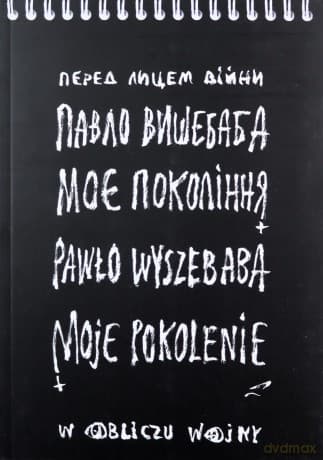 ПЕРЕД ЛИЦЕМ ВІЙНИ
ПАВЛО ВИШЕБАБА
МОЄ ПОКОЛІННЯ
PAWŁO WYSZEBABA
MOJE POKOLENIE
W OBLICZU WOJNY
dvdmax